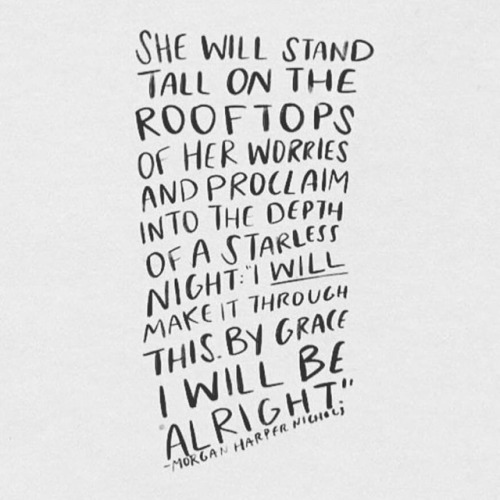 SHE WILL STAND
TALL ON THE
ROOFTOPS
OF HER WORRIES
AND PROCLAIM
INTO THE DEPTH
OF A STARLESS
NIGHT: "I WILL
MAKE IT THROUGH
THIS. BY GRACE
I WILL BE
ALRIGHT."
-MORGAN HARPER NICHOLS